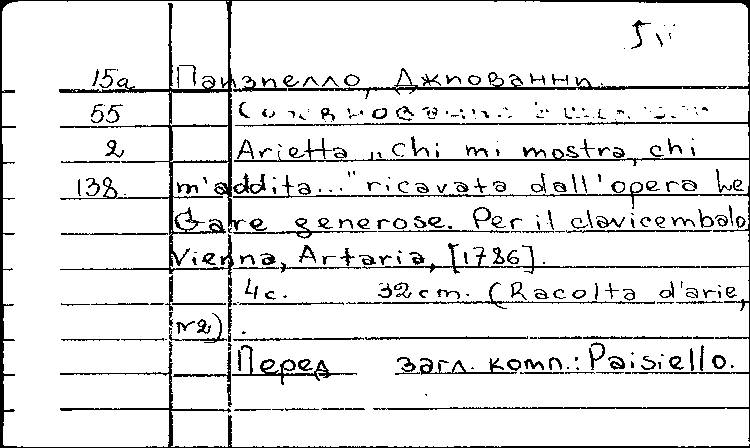 15а Паизиелло, Джиованни.
55
2 Arietta „Chi mi mostra, chi
138 m'addita..." ricavata dall'opera Le
Gare generose. Per il clavicembalo
Vienna, Artaria, [1786].
4 с. 32 cm. (Racolta d'arie,
N2).
Перед загл. комп.: Paisiello.